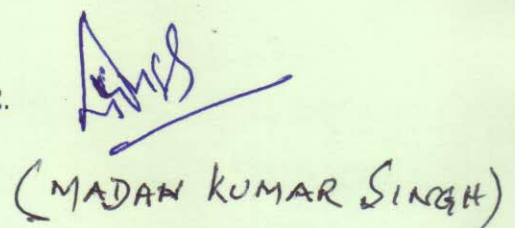 (MADAN KUMAR SINGH)